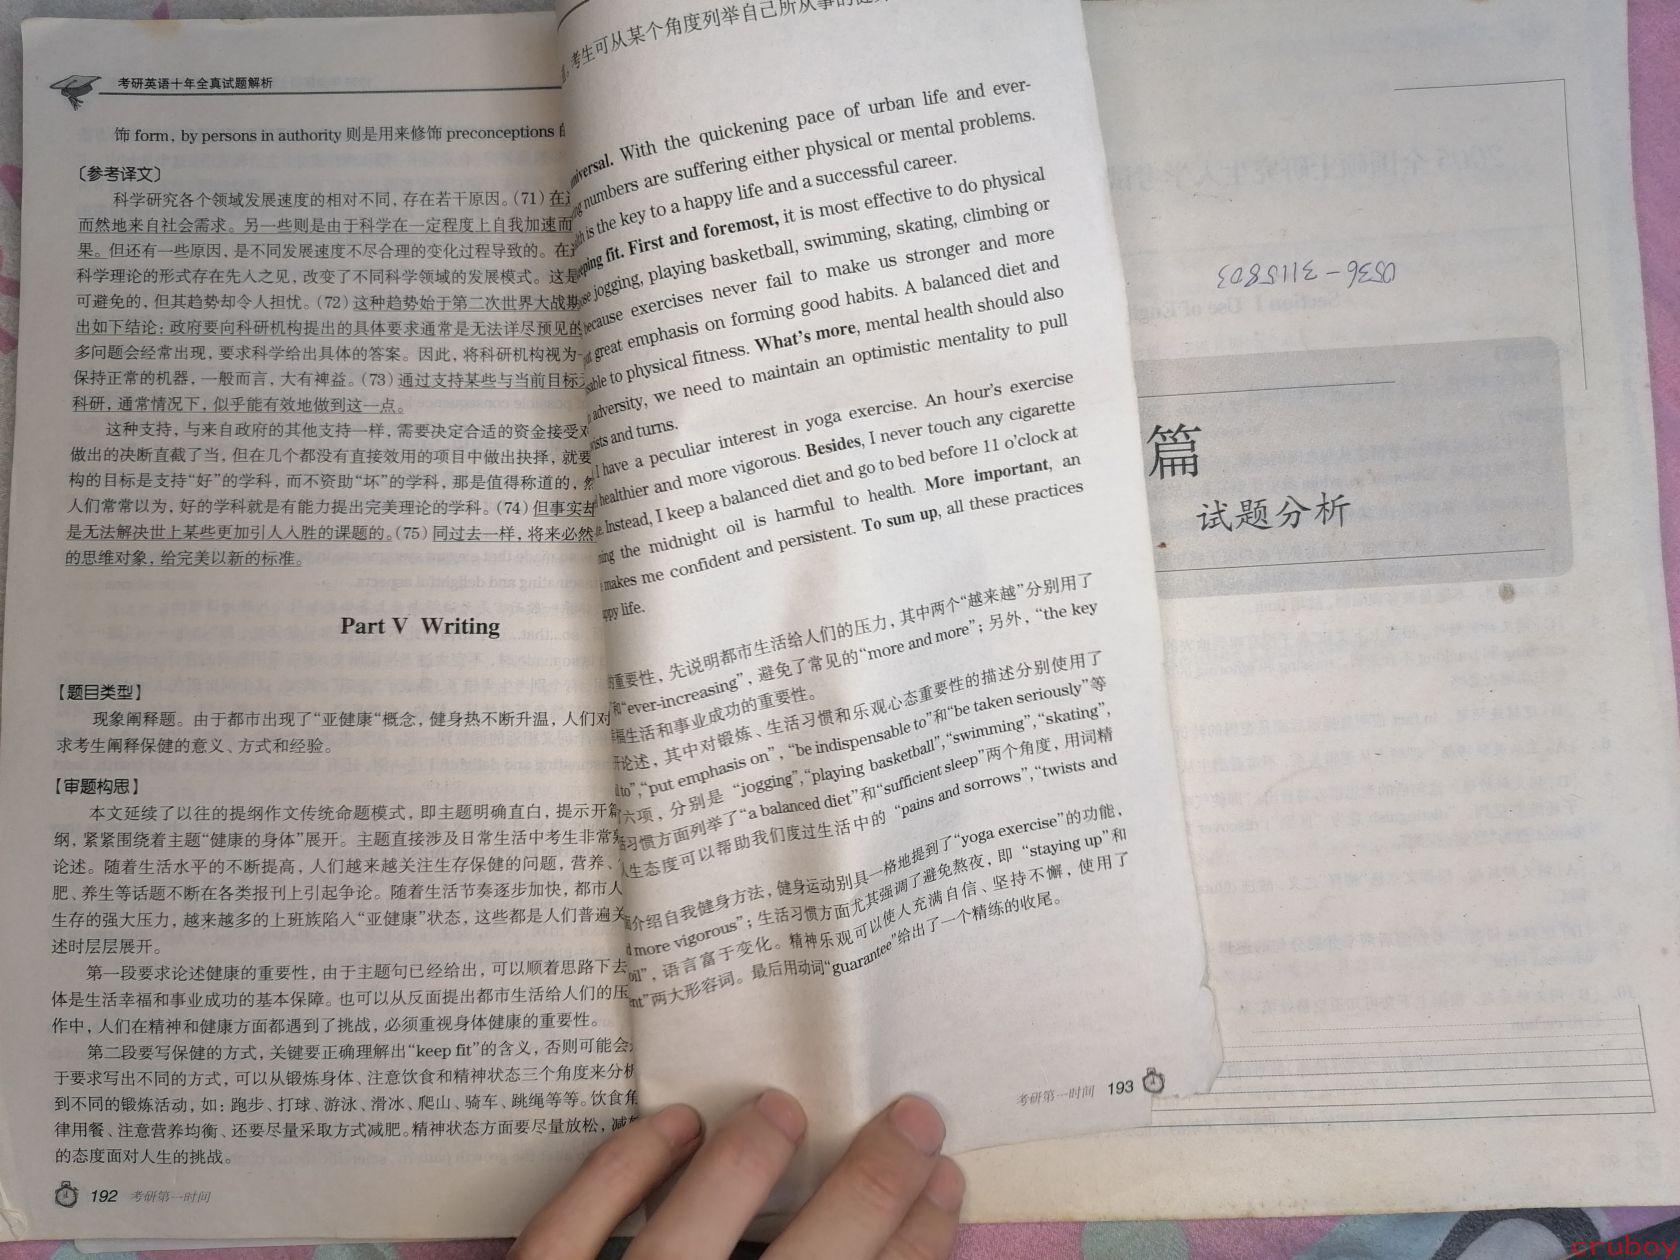 考研英语十年全真试题解析
饰 form, by persons in authority 则是用来修饰 preconceptions
〔参考译文〕
科学研究各个领域发展速度的相对不同，存在若干原因。（71）在
而然地来自社会需求。另一些则是由于科学在一定程度上自我加速而
果。但还有一些原因，是不同发展速度不尽合理的变化过程导致的。在
科学理论的形式存在先入之见，改变了不同科学领域的发展模式。这是
可避免的，但其趋势却令人担忧。（72）这种趋势始于第二次世界大战期
出如下结论：政府要向科研机构提出的具体要求通常是无法详尽预见的
多问题会经常出现，要求科学给出具体的答案。因此，将科研机构视为
保持正常的机器，一般而言，大有裨益。（73）通过支持某些与当前目标
科研，通常情况下，似乎能有效地做到这一点。
这种支持，与来自政府的其他支持一样，需要决定合适的资金接受
做出的决断直截了当，但在几个都没有直接效用的项目中做出抉择，就要
构的目标是支持“好”的学科，而不资助“坏”的学科，那是值得称道的，
人们常常以为，好的学科就是有能力提出完美理论的学科。（74）但事实却
是无法解决世上某些更加引人入胜的课题的。（75）同过去一样，将来必然
的思维对象，给完美以新的标准。
Part V Writing
【题目类型】
现象阐释题。由于都市出现了“亚健康“概念，健身热不断升温，人们对
求考生阐释保健的意义、方式和经验。
【审题构思】
本文延续了以往的提纲作文传统命题模式，即主题明确直白，提示开
纲，紧紧围绕着主题“健康的身体”展开。主题直接涉及日常生活中考生非常
论述。随着生活水平的不断提高，人们越来越关注生存保健的问题，营养、
肥、养生等话题不断在各类报刊上引起争论。随着生活节奏逐步加快，都市人
生存的强大压力，越来越多的上班族陷入“亚健康”状态，这些都是人们普遍关
述时层层展开。
第一段要求论述健康的重要性，由于主题句已经给出，可以顺着思路下去
体是生活幸福和事业成功的基本保障。也可以从反面提出都市生活给人们的压
作中，人们在精神和健康方面都遇到了挑战，必须重视身体健康的重要性。
第二段要写保健的方式，关键要正确理解出“keep fit”的含义，否则可能会
于要求写出不同的方式，可以从锻炼身体、注意饮食和精神状态三个角度来分析
到不同的锻炼活动，如：跑步、打球、游泳、滑冰、爬山、骑车、跳绳等等。饮食角
律用餐、注意营养均衡、还要尽量采取方式减肥。精神状态方面要尽量放松，减
的态度面对人生的挑战。
192 考研第一时间
考生可从某个角度列举自己所从事的健
universal. With the quickening pace of urban life and ever-
numbers are suffering either physical or mental problems.
is the key to a happy life and a successful career.
keeping fit. First and foremost, it is most effective to do physical
jogging, playing basketball, swimming, skating, climbing or
because exercises never fail to make us stronger and more
great emphasis on forming good habits. A balanced diet and
to physical fitness. What's more, mental health should also
adversity, we need to maintain an optimistic mentality to pull
and turns.
I have a peculiar interest in yoga exercise. An hour's exercise
healthier and more vigorous. Besides, I never touch any cigarette
Instead, I keep a balanced diet and go to bed before 11 o'clock at
the midnight oil is harmful to health. More important, an
makes me confident and persistent. To sum up, all these practices
life.
重要性，先说明都市生活给人们的压力，其中两个“越来越”分别用了
和“ever-increasing”，避免了常见的“more and more”；另外，“the key
生活和事业成功的重要性。
论述，其中对锻炼、生活习惯和乐观心态重要性的描述分别使用了
to”,“put emphasis on”,“be indispensable to”和“be taken seriously”等
六项，分别是 “jogging”,“playing basketball”,“swimming”,“skating”,
习惯方面列举了“a balanced diet”和“sufficient sleep”两个角度，用词精
生态度可以帮助我们度过生活中的 “pains and sorrows”,“twists and
介绍自我健身方法，健身运动别具一格地提到了“yoga exercise”的功能，
more vigorous”；生活习惯方面尤其强调了避免熬夜，即 “staying up”和
oil”，语言富于变化。精神乐观可以使人充满自信、坚持不懈，使用了
两大形容词。最后用动词“guarantee”给出了一个精练的收尾。
考研第一时间 193
0536-3115803
篇
试题分析
cruboy